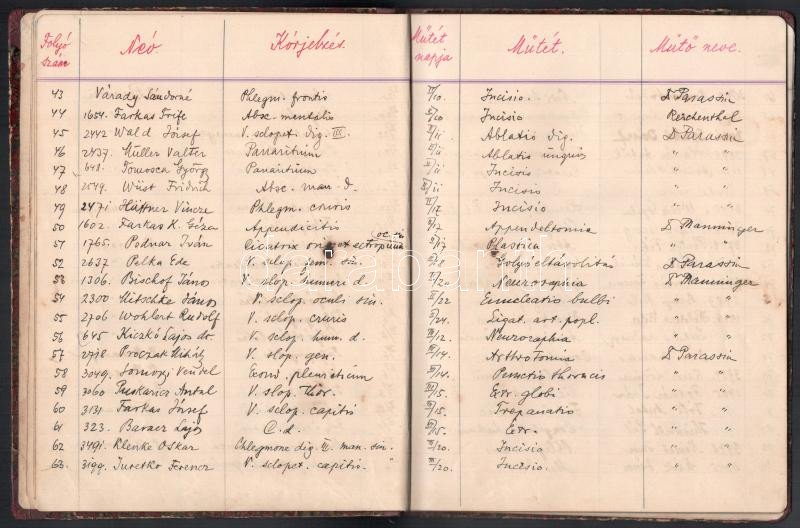 Folyó szám Név Kórjelzés. Műtét napja Műtét. Műtő neve.
43 Várady Sándorné Phlegm. frontis /10. Incisio. Dr Parassin
44 1654. Farkas Absc. mentalis /10 Incisio Reichenthal
45 2442 Wald József V. sclopet. dig. III. /11 Ablatio dig. Dr Parassin
46 2437. Müller Valter Panaritium /11 Ablatio unguis " "
47 648. Tomosca György Panaritium /11 Incisio " "
48 2549. Wüst Fridrich Absc. man. d. /11 Incisio " "
49 2471 Hüttner Vincze Phlegm. cruris /17 Incisio " "
50 1602. Farkas K. Géza Appendicitis /17 Appendektomia Dr Manninger
51 1765. Podnar Iván Cicatrix orig. et ectropium oc. /17 Plastica " "
52 2637 Pelka Ede V. sclop. fem. sin. /18 Golyó eltávolítás Dr Parassin
53 1306. Bischof János V. sclop. humeri d. /20 Neurorapia Dr Manninger
54 2300 Mitschke János V. sclop. oculi sin. /22 Enucleatio bulbi " "
55 2706 Wohlert Rudolf V. sclop. cruris /24. Ligat. art. popl. " "
56 645 Kiczkó Lajos dr. V. sclop. hum. d. /12. Neuroraphia " "
57 2778. Próczak Mihály V. slop. gen. /14. Arthrotomia Dr Parassin
58 3049. Somogyi Vendel Exsud. pleuriticum /14. Punctio thoracis " "
59 3060 Puskarics Antal V. slop. thor. /15. Extr. globi " "
60 3131 Farkas József V. sclop. capitis /15. Trepanatio " "
61 323. Baracz Lajos C. d. /15. Extr. " "
62 3491. Klenke Oskar Phlegmone dig. II. man. sin. /20. Incisio " "
63. 3199. Juretko Ferencz V. sclopet. capitis. /20. Incisio. " "